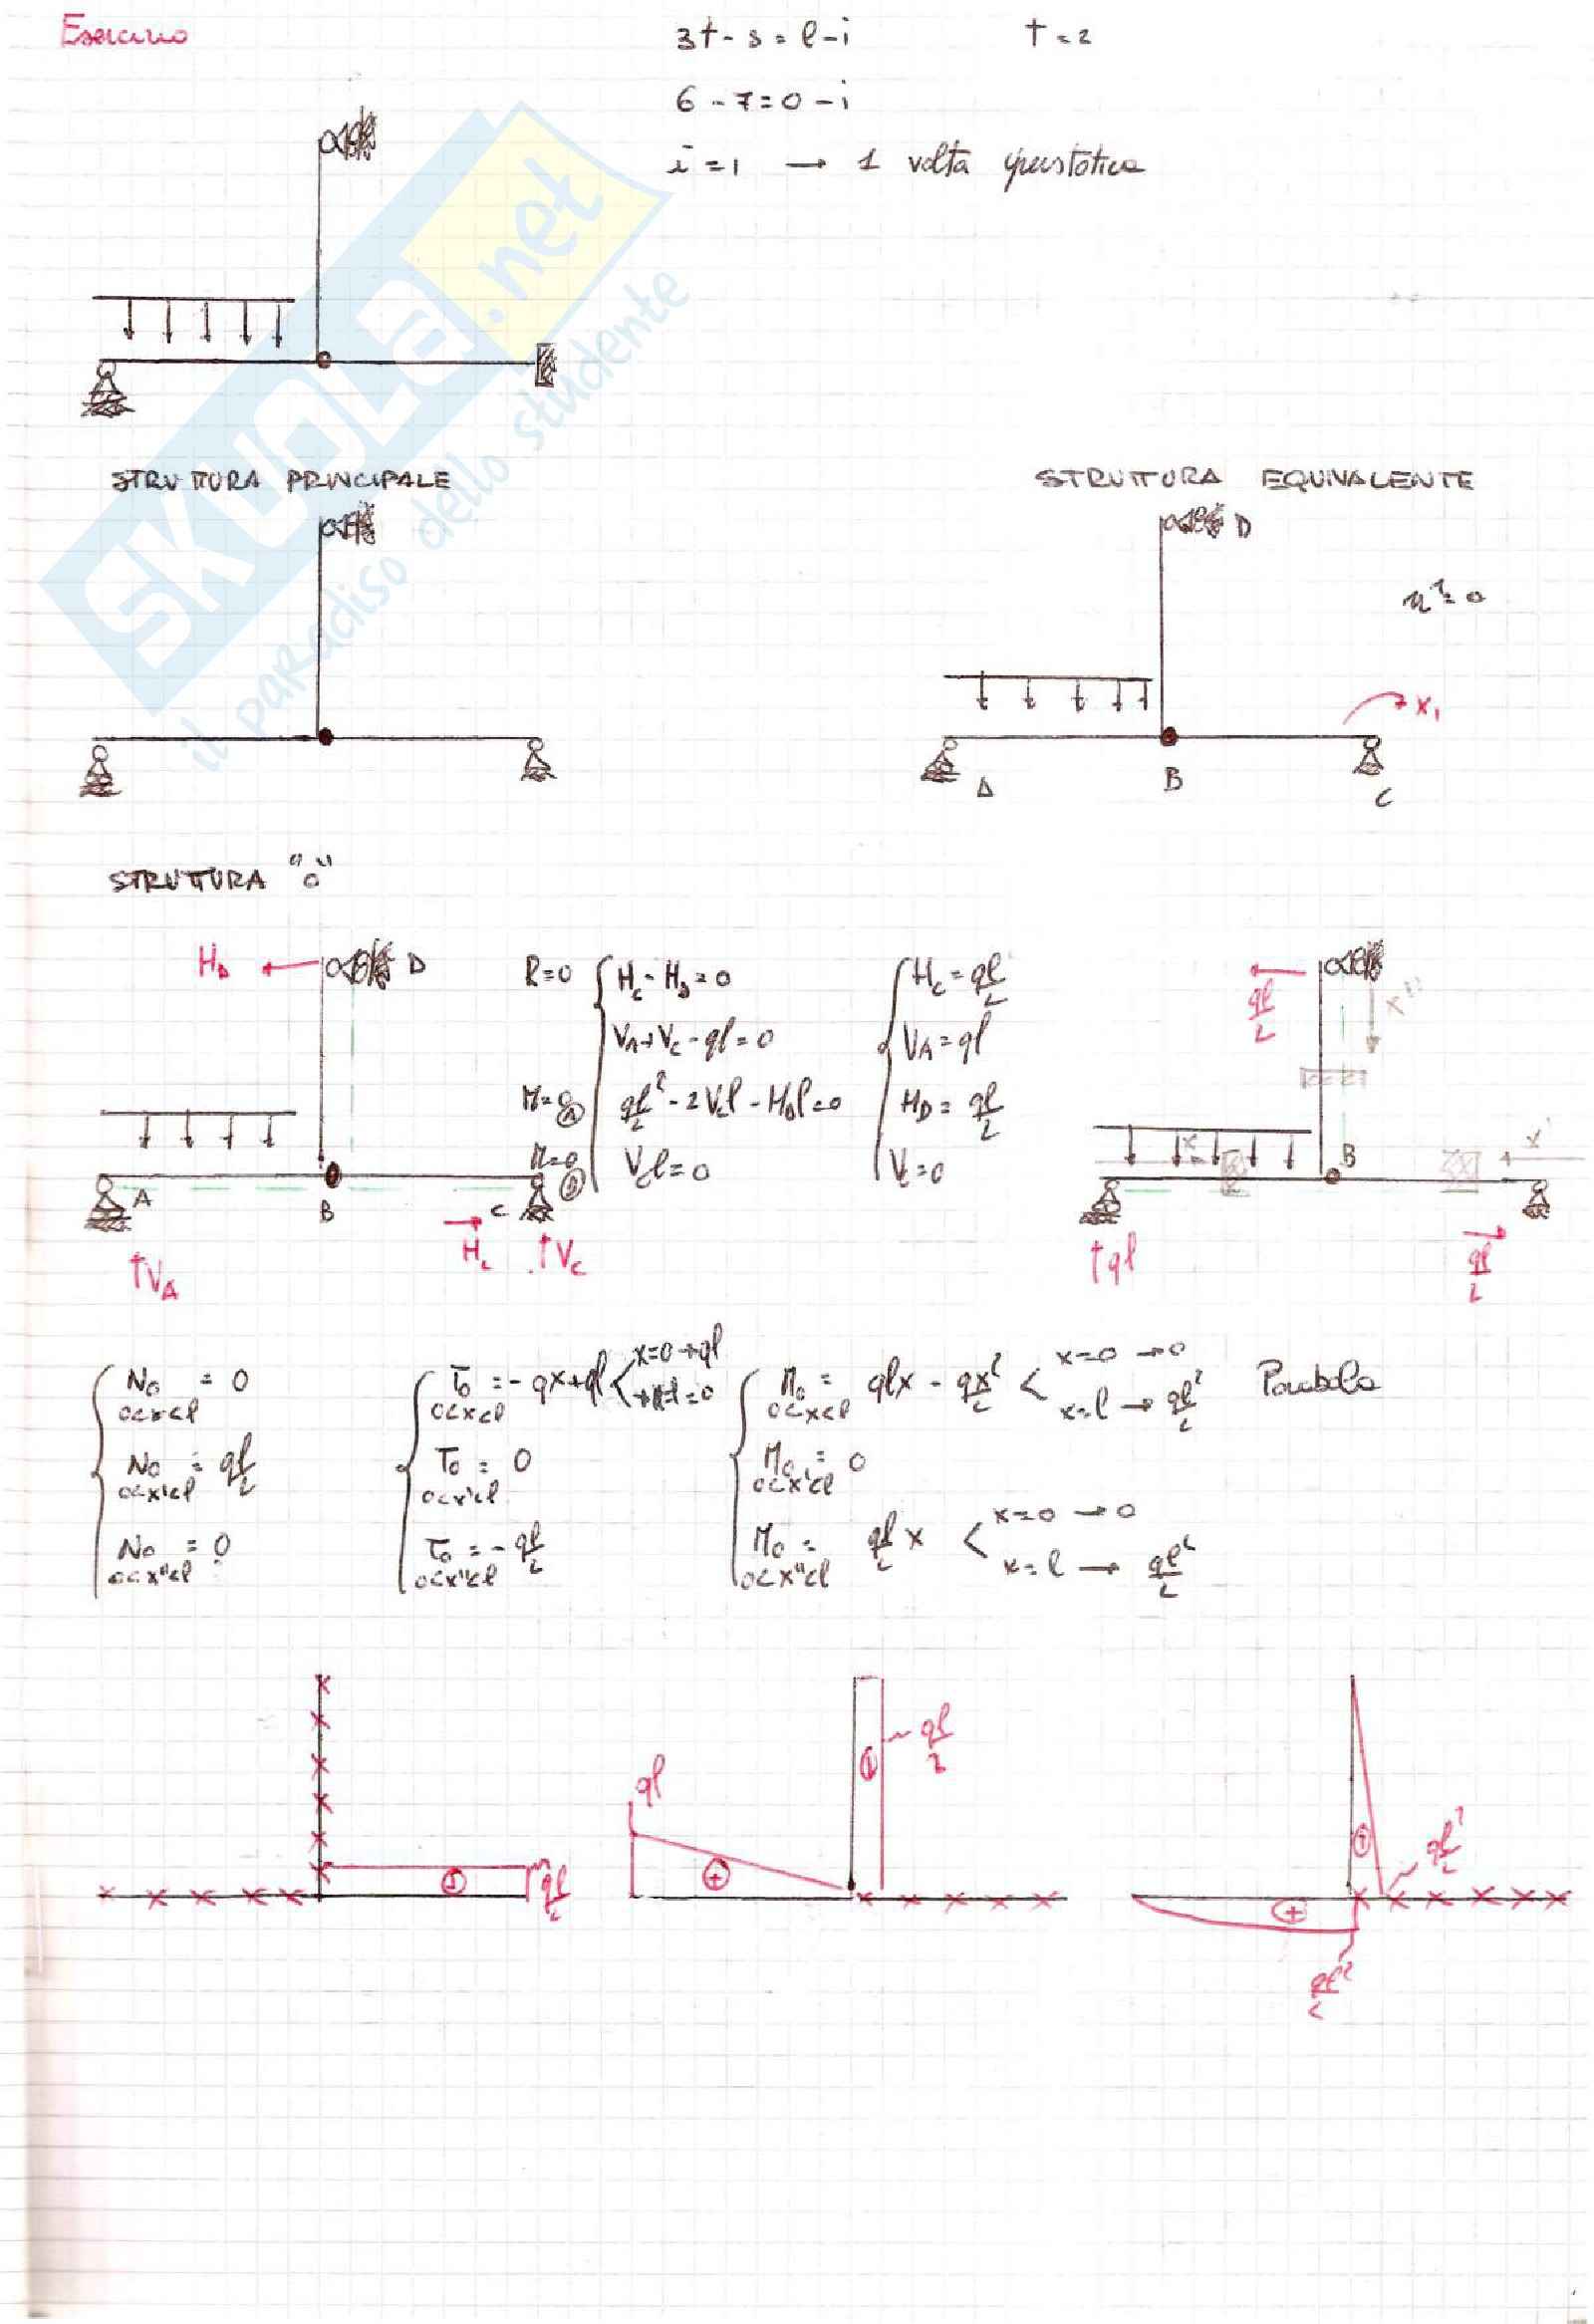 Esercizio
3t - s = l - i
t = 2
6 - 7 = 0 - i
i = 1 → 1 volta iperstatica
SKUOLA.net
il paradiso dello studente
STRUTTURA PRINCIPALE
STRUTTURA EQUIVALENTE
D
= 0
X₁
A
B
C
STRUTTURA "0"
H_D
D
A
B
C
V_A
H_C
V_C
R=0
H_C - H_D = 0
V_A + V_C - ql = 0
M=0 Ⓐ
ql²/2 - 2V_C l - H_D l = 0
M=0
V_C l = 0
H_C = ql/2
V_A = ql
H_D = ql/2
V_C = 0
ql/2
x''
x
B
x'
ql
ql/2
N₀ = 0
0<x<l
N₀ = ql/2
0<x'<l
N₀ = 0
0<x''<l
T₀ = - qx + ql < x=0 → ql
0<x<l
T₀ = 0
0<x'<l
T₀ = - ql/2
0<x''<l
M₀ = qlx - qx²/2 < x=0 → 0
x=l → ql²/2
Parabola
0<x<l
M₀ = 0
0<x'<l
M₀ = ql/2 x < x=0 → 0
x=l → ql²/2
0<x''<l
ql/2
ql
+
ql/2
+
ql²/2
ql²/2